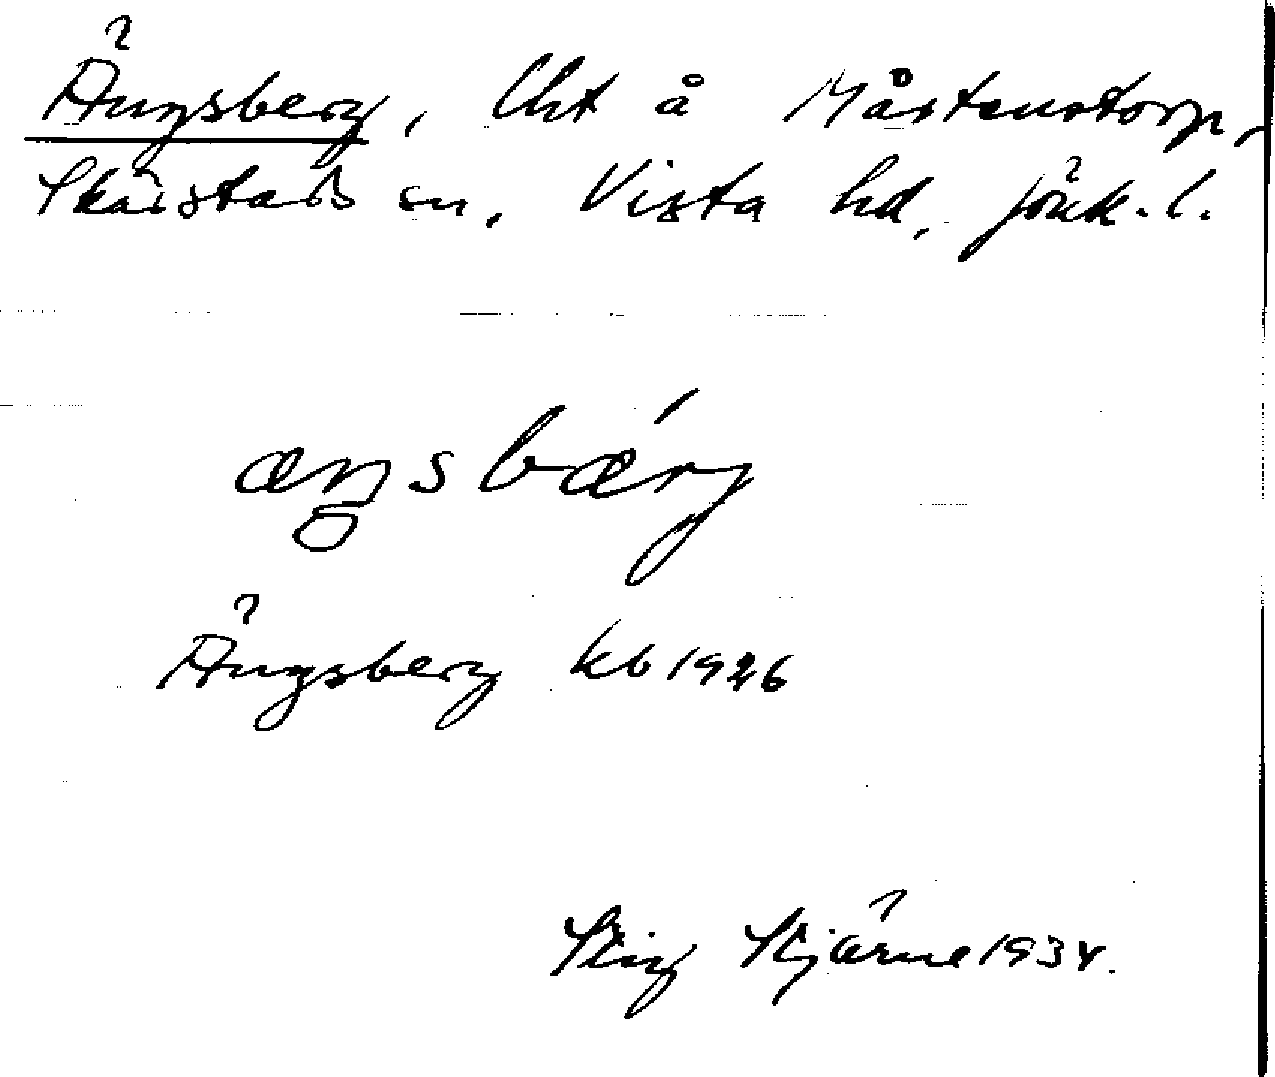 Ängsberg, lht å Mårtenstorp,
Skärstads sn, Vista hd, Jönk. l.
æŋsbærg
Ängsberg kb 1926
Stig Stjärne 1934.